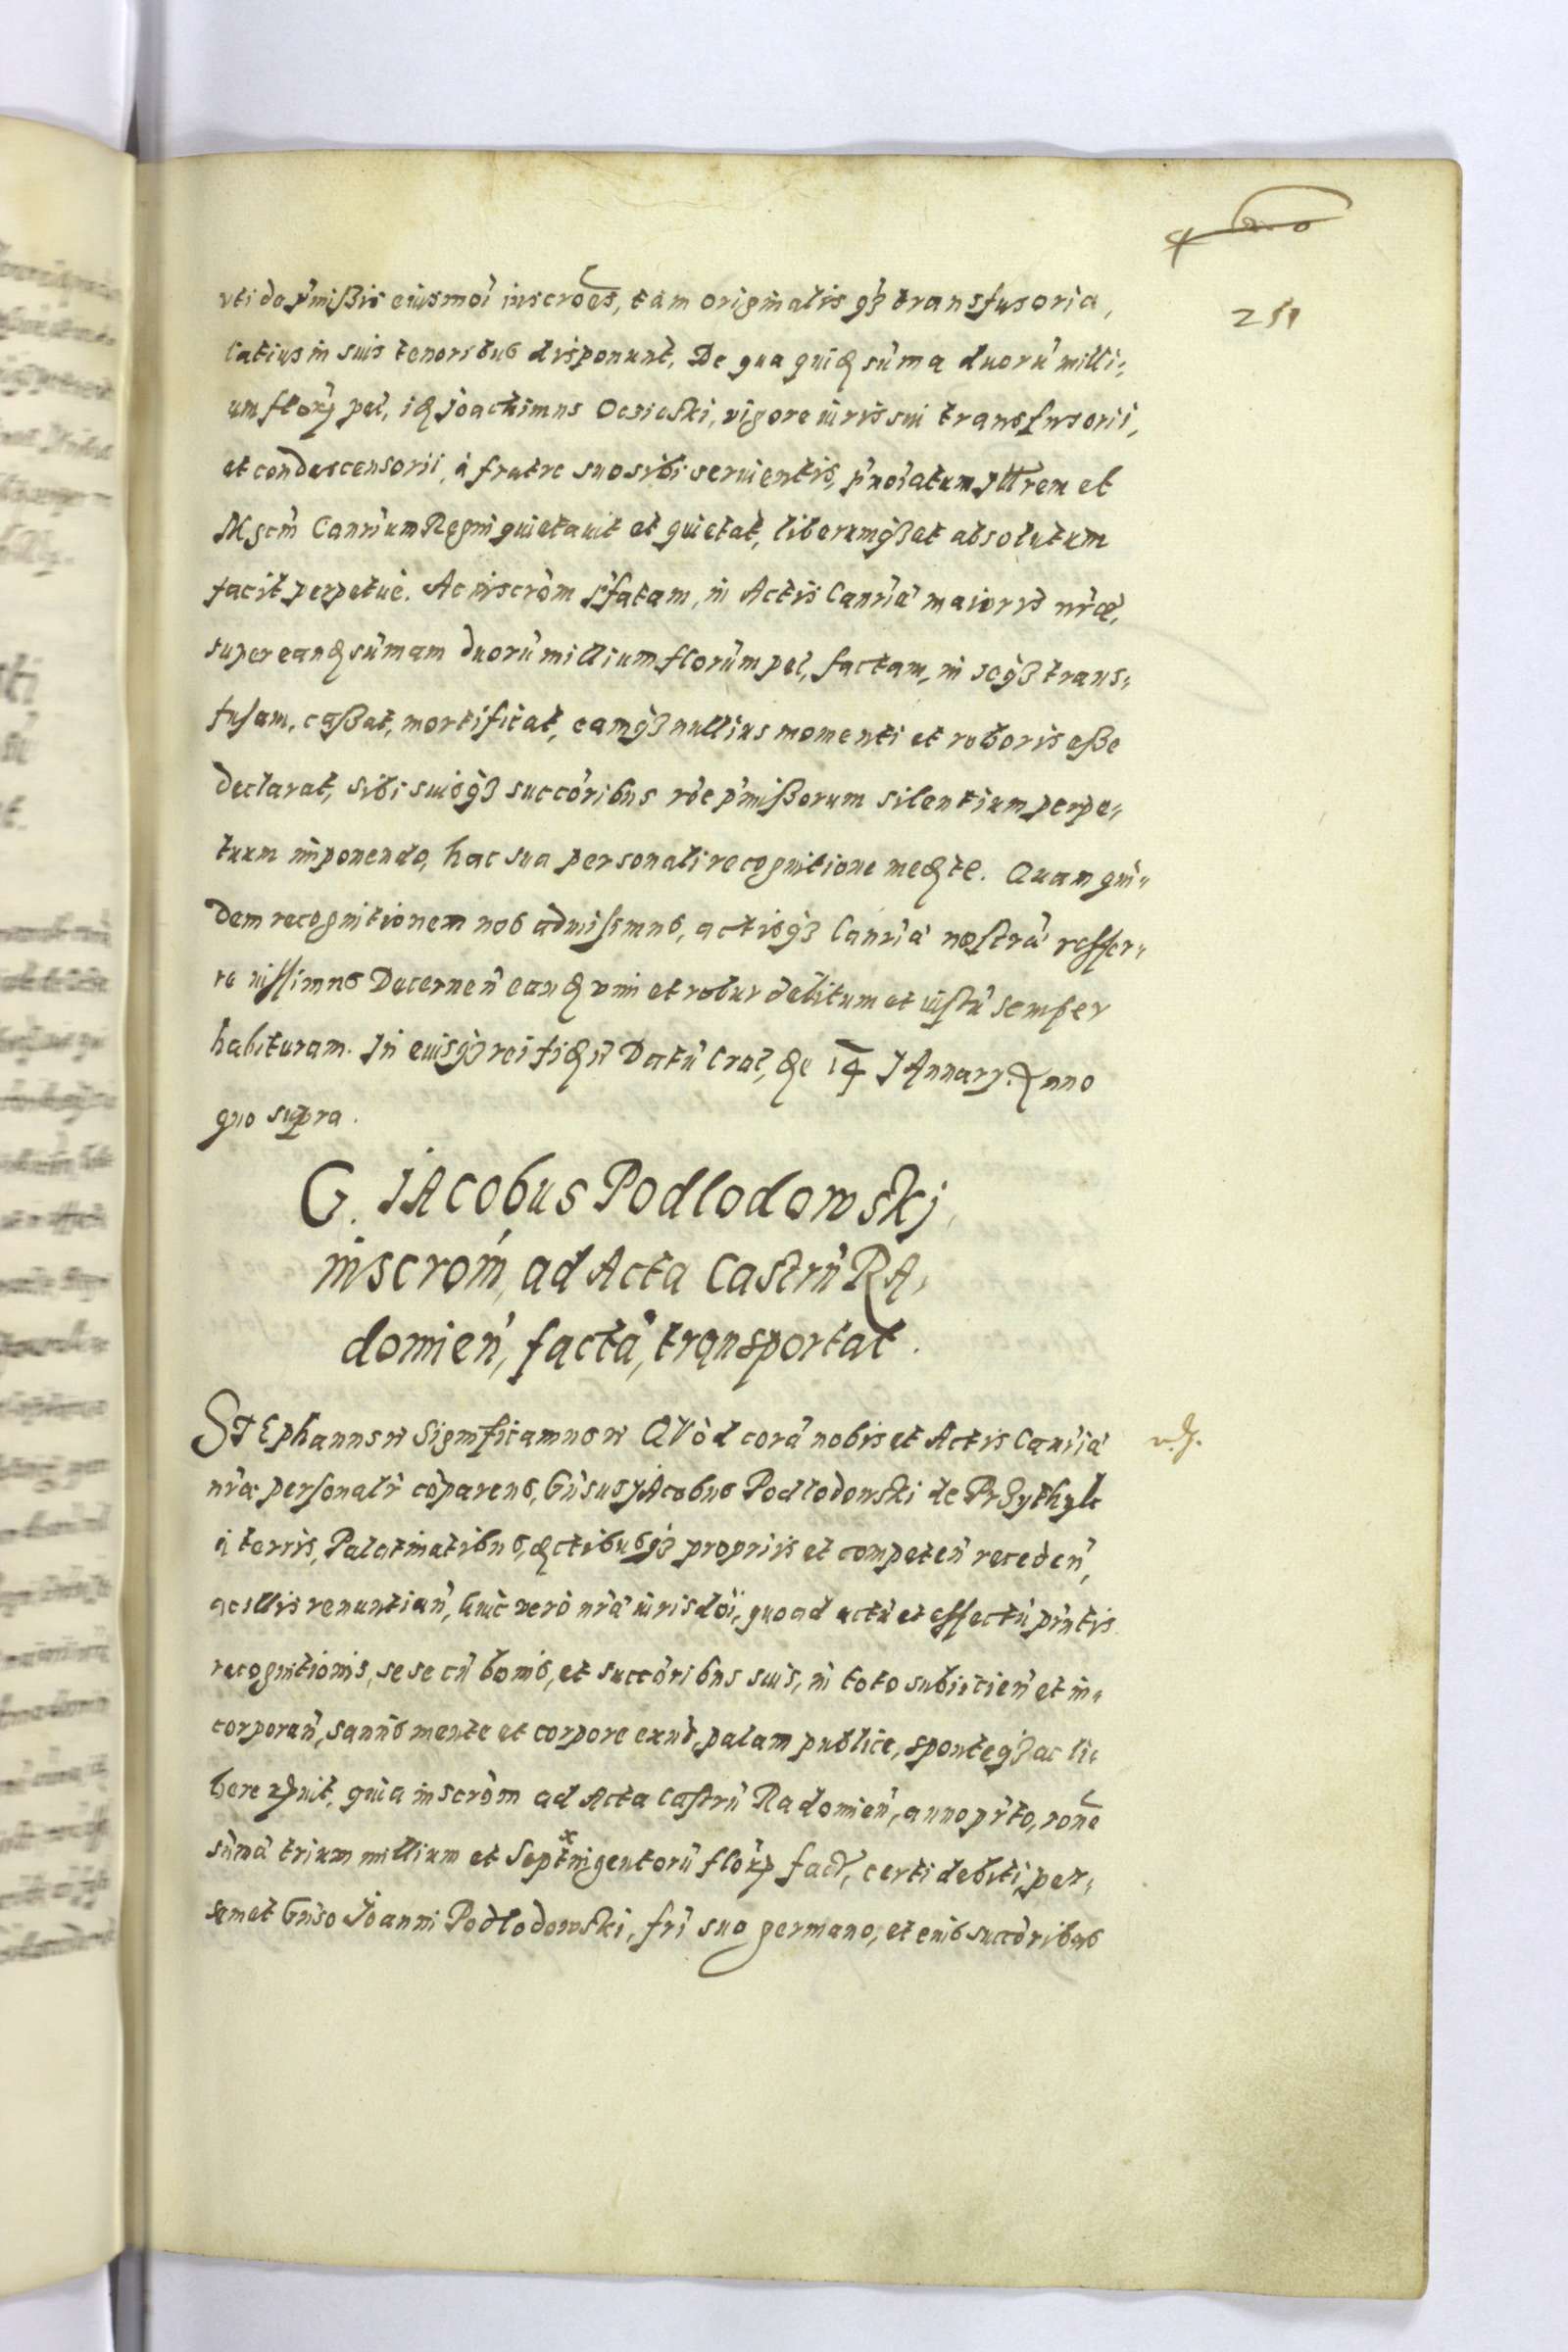 251
vti de p'missis eiusmoi inscroes, tam originalis q3 transfusoria,
latius in suis tenoribus disponunt, De qua quidem su'ma duoru' milli-
um flor' pol, idem Joachimus Ocieski, vigore iuris sui transfusorii,
et condescensorii, à fratre suo sibi seruientis, p'noi'atum Illrem et
Mgcm' Canrium Regni quietauit et quietat, liberumq3 et absolutum
facit perpetuè. Ac inscro'm p'fatam, in Actis Canria' maioris nr'æ,
super eandem su'mam duoru' millium floru'm pol, factam, in seq3 trans-
fusam, cassat, mortificat, eamq3 nullius momenti et roboris esse
declarat, sibi suisq3 succo'ribus ro'e p'missorum silentium perpe-
tuum imponendo, hac sua personali recognitione mediante. Quam qui-
dem recognitionem nos admisimus, actisq3 Canria' nostra' reffer-
re iussimus Decernen' eandem vim et robur debitum et iustu' semper
habituram. In cuiusq3 rei fidem n' Datu' Crac, die 14 JAnuary. Anno
quo supra.
G. JAcobus Podlodowskj,
inscrom, ad Acta Castrn' RA-
domien', facta', transportat.
STEphanus n' Significamus n' QVòd cora' nobis et Actis Canria'
nr'æ personalr' co'parens, Gn'sus JAcobus Podlodowski de PrZythyk
à terris, Palatinatibus, Actibusq3 propriis et competen' receden',
ac illis renuntian', huic verò nr'a' iurisdoi', quoad actu' et effectu' pn'tis
recognitionis, sese cu' bonis, et succo'ribus suis, in toto subiicien' et in-
corporan', sanus mente et corpore exns', palam publice, sponteq3 ac li-
bere recognouit, quia inscro'm ad Acta Castrn' Radomien', anno pr'to, rone
su'ma' trium millium et Septingentoru' flor' fact, certi debiti, per
semet Gn'so Joanni Podlodowski, fri' suo germano, et eius succo'ribus